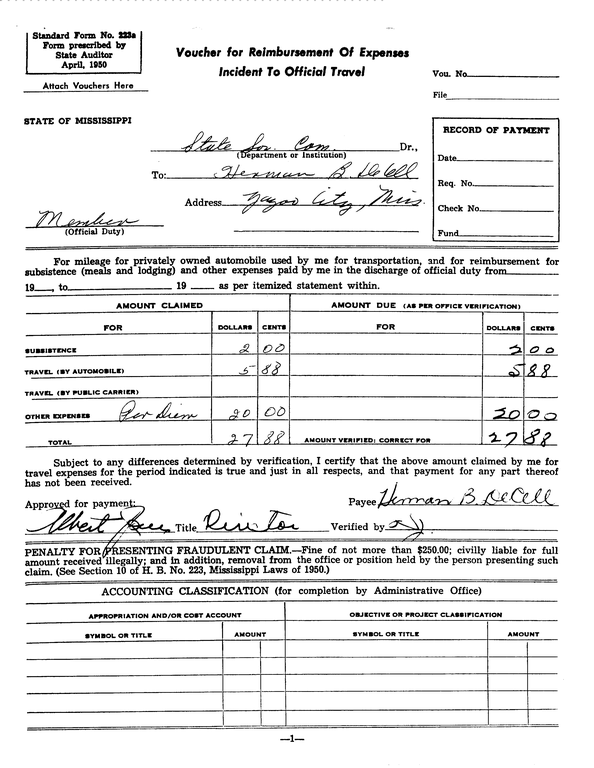 Standard Form No. 223a
Form prescribed by
State Auditor
April, 1950
Attach Vouchers Here
Voucher for Reimbursement Of Expenses
Incident To Official Travel
Vou. No.
File
STATE OF MISSISSIPPI
RECORD OF PAYMENT
Date
Req. No.
Check No.
Fund
State Sov. Com. Dr.,
(Department or Institution)
To: Herman B. DeCell
Address Yazoo City, Miss.
Member
(Official Duty)
For mileage for privately owned automobile used by me for transportation, and for reimbursement for
subsistence (meals and lodging) and other expenses paid by me in the discharge of official duty from
19 , to 19 as per itemized statement within.
AMOUNT CLAIMED AMOUNT DUE (AS PER OFFICE VERIFICATION)
FOR DOLLARS CENTS FOR DOLLARS CENTS
SUBSISTENCE 2 00 2 00
TRAVEL (BY AUTOMOBILE) 5 88 5 88
TRAVEL (BY PUBLIC CARRIER)
OTHER EXPENSES for Per Diem 20 00 20 00
TOTAL 27 88 AMOUNT VERIFIED: CORRECT FOR 27 88
Subject to any differences determined by verification, I certify that the above amount claimed by me for
travel expenses for the period indicated is true and just in all respects, and that payment for any part thereof
has not been received.
Approved for payment: Payee Herman B. DeCell
Albert Title Director Verified by
PENALTY FOR PRESENTING FRAUDULENT CLAIM.—Fine of not more than $250.00; civilly liable for full
amount received illegally; and in addition, removal from the office or position held by the person presenting such
claim. (See Section 10 of H. B. No. 223, Mississippi Laws of 1950.)
ACCOUNTING CLASSIFICATION (for completion by Administrative Office)
APPROPRIATION AND/OR COST ACCOUNT OBJECTIVE OR PROJECT CLASSIFICATION
SYMBOL OR TITLE AMOUNT SYMBOL OR TITLE AMOUNT
—1—